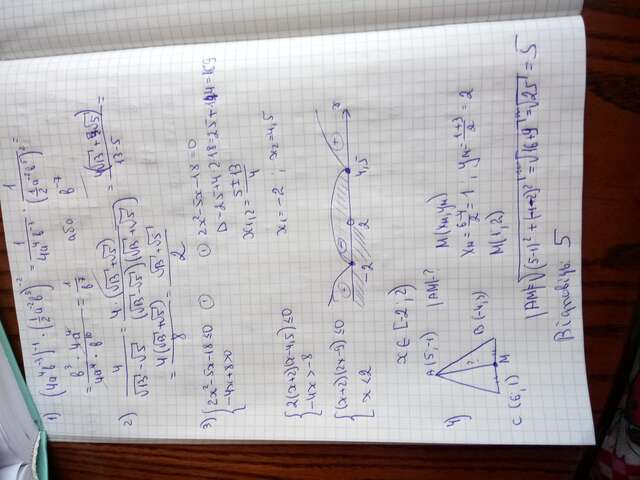 1) (4a⁴b³)⁻¹ · (½a⁻²b⁵)⁻² = 1/(4a⁴b³) · 1/(½a⁻²b⁵)² =
2) 4/(√13-√5) = 4(√13+√5)/((√13-√5)(√13+√5)) = 4(√13+√5)/(13-5) =
= 4(√13+√5)/8 = (√13+√5)/2
3) {2x²-5x-18≤0 ①
-4x+8>0
① 2x²-5x-18=0
D=25+4·2·18=25+144=169
x₁,₂=(5±13)/4
x₁=-2; x₂=4,5
{2(x+2)(x-4,5)≤0
-4x>-8
{(x+2)(2x-9)≤0
x<2
+ - +
-2 2 4,5 x
x∈[-2;2)
4)
A(5;-1)
B(-4;3)
C(6;1)
M
?
|AM|-?
M(xм;yм)
xм=(6-4)/2=1; yм=(1+3)/2=2
M(1;2)
|AM|=√((5-1)²+(-1-2)²)=√(16+9)=√25=5
Відповідь 5